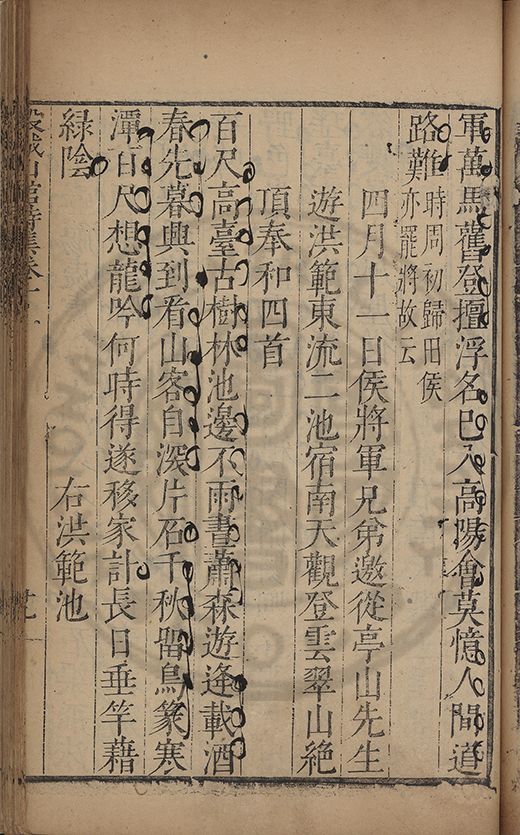 軍萬馬舊登擅浮名已入高陽會莫憶人間道
路難時周初歸田侯
亦罷將故云
四月十一日侯將軍兄弟邀從亭山先生
遊洪範東流二池宿南天觀登雲翠山絕
頂奉和四首
百尺高臺古樹林池邊不雨晝蕭森遊逢載酒
春先暮興到看山客自深片石千秋畱鳥篆寒
潭百尺想龍吟何時得遂移家計長日垂竿藉
緑陰
右洪範池
山館詩集卷十